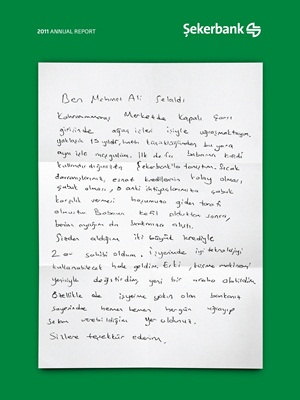 2011 ANNUAL REPORT
Şekerbank
Ben Mehmet Ali Selaldı
Kahramanmaraş Merkezde Kapalı Çarşı
girişinde ağaç işleri işiyle uğraşmaktayım.
yaklaşık 15 yıldır, hatta
aynı işle meşgulüm. İlk defa babamın kredi
kullandığında Şekerbank'la tanıştım. Sıcak
davranışlarınız, esnaf kredilerinin kolay olması,
çabuk olması, o anki ihtiyaçlarımıza çabuk
karşılık vermesi hoşumuza giden tarafı
olmuştur. Babamın kefil olduktan sonra,
benim ayağım da bankanıza alıştı.
Sizden aldığım iki büyük krediyle
2 ev sahibi oldum. İşyerimde işi teknolojiyi
kullanabilecek hale geldim. Eski, biçme makinemi
yenisiyle değiştirdim, yeni bir araba alabildim.
Özellikle de işyerime yakın olan bankanız
sayesinde hemen hemen hergün uğrayıp
selam verebildiğim yer oldunuz.
Sizlere teşekkür ederim.